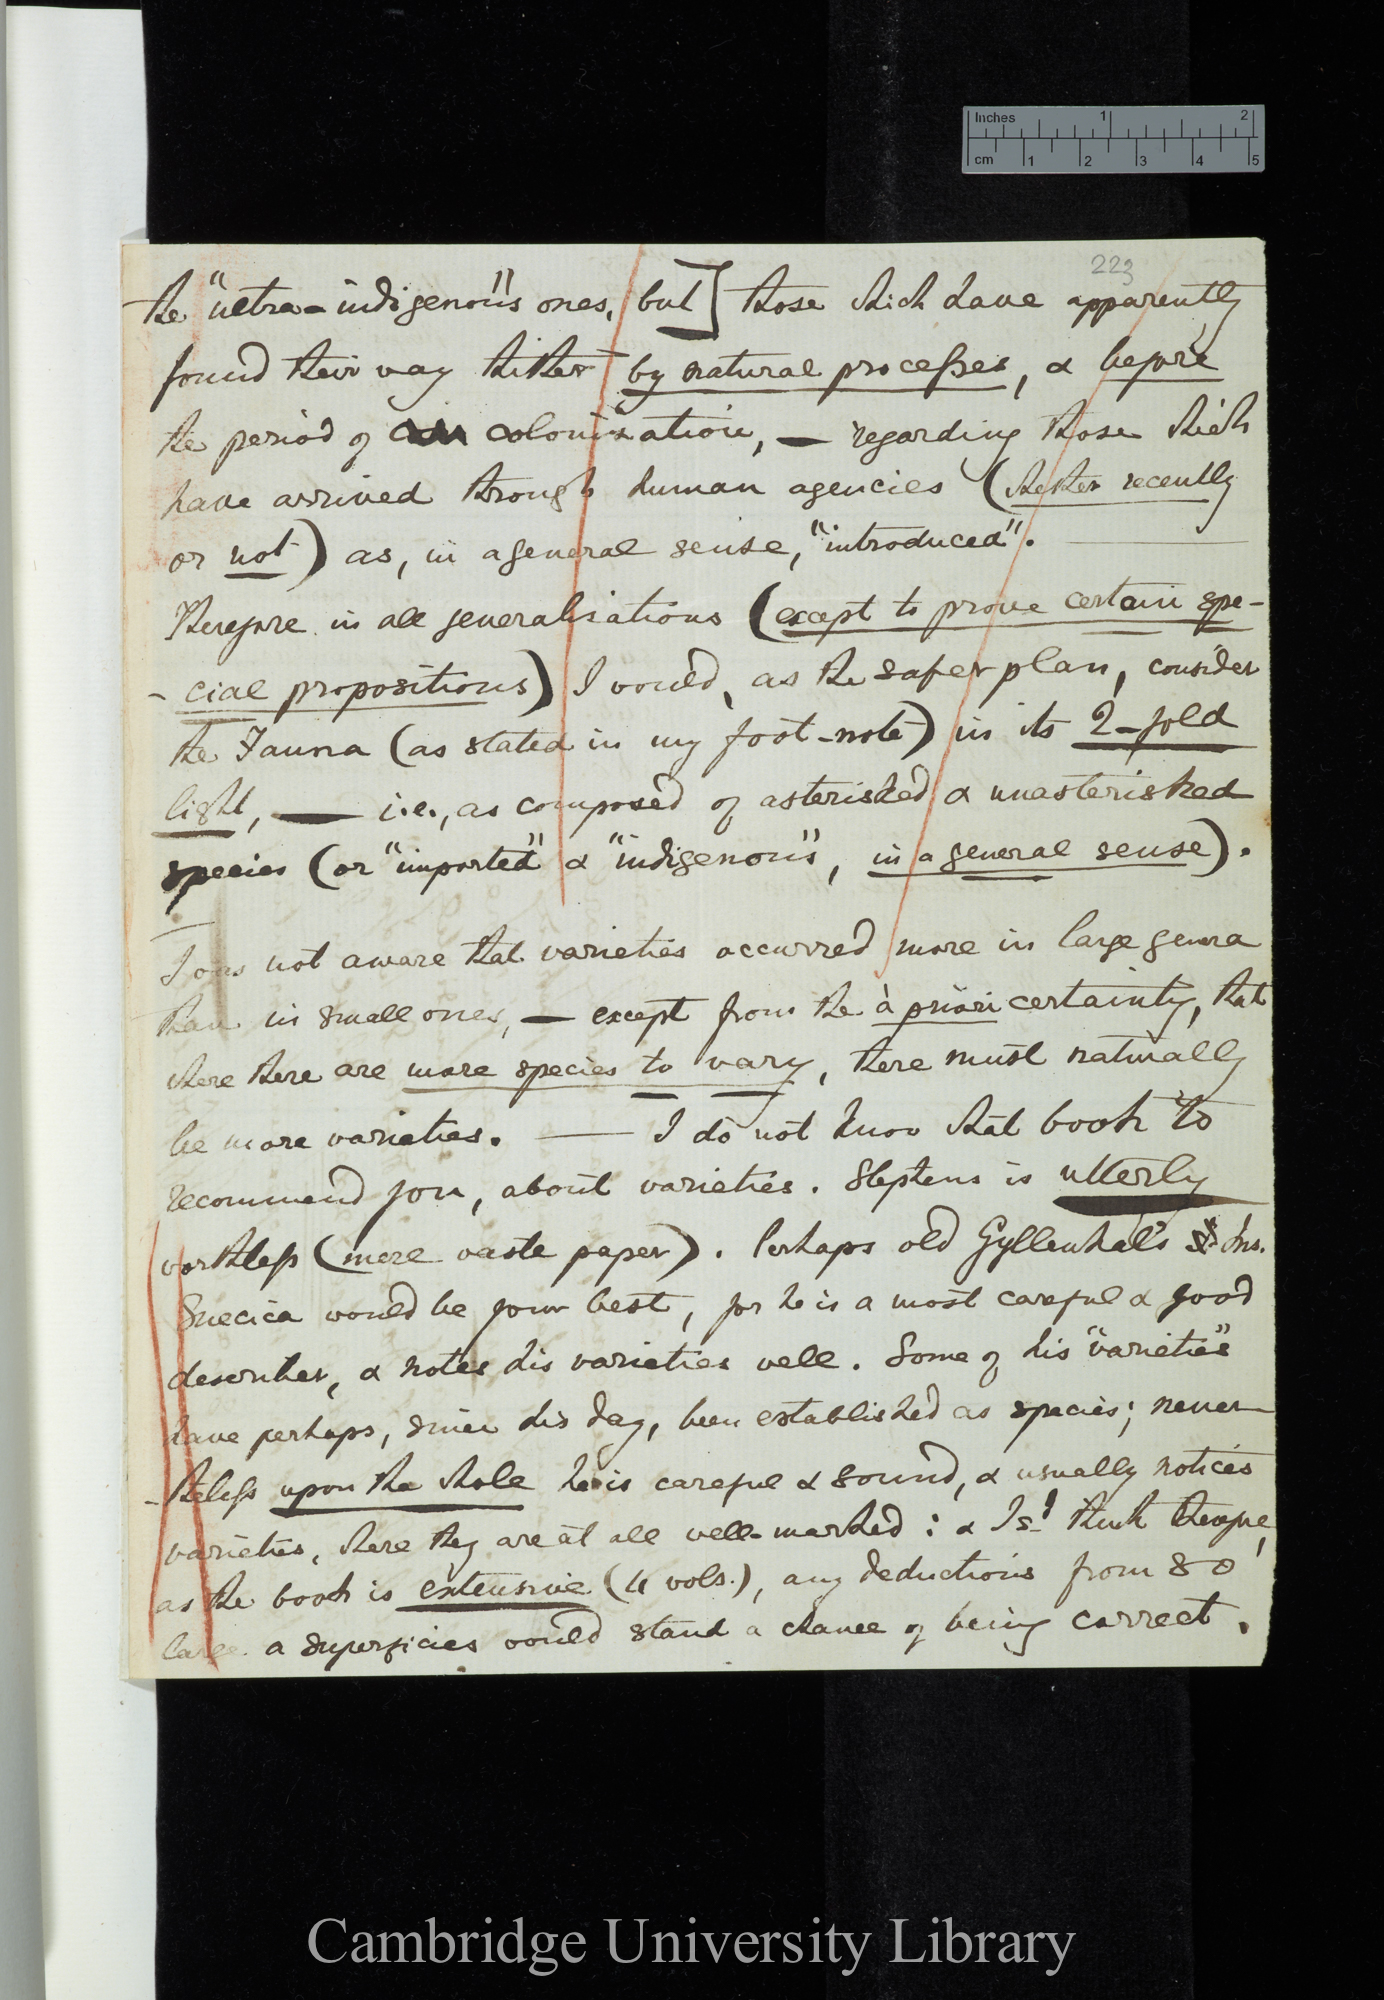 Inches 1 2
cm 1 2 3 4 5
223
the "ultra-indigenous" ones, but] those which have apparently
found their way thither by natural processes, & before
the period of colonization, — regarding those which
have arrived through human agencies (whether recently
or not) as, in a general sense, "introduced". —
Therefore in all generalisations (except to prove certain spe-
-cial propositions) I would, as the safer plan, consider
the Fauna (as stated in my foot-note) in its 2-fold
light, — i.e., as composed of asterisked & unasterisked
species (or "imported" & "indigenous", in a general sense).
I was not aware that varieties occurred more in large genera
than in small ones, — except from the à priori certainty, that
where there are more species to vary, there must naturally
be more varieties. — I do not know what book to
recommend you, about varieties. Stephens is utterly
worthless (mere waste paper). Perhaps old Gyllenhal's Ins.
Suecica would be your best, for he is a most careful & good
describer, & notes his varieties well. Some of his "varieties"
have perhaps, since his day, been established as species; never-
-theless upon the whole he is careful & sound, & usually notices
varieties, where they are at all well-marked: & I shd. think therefore,
as the book is extensive (4 vols.), any deductions from so
large a superficies would stand a chance of being correct.
Cambridge University Library